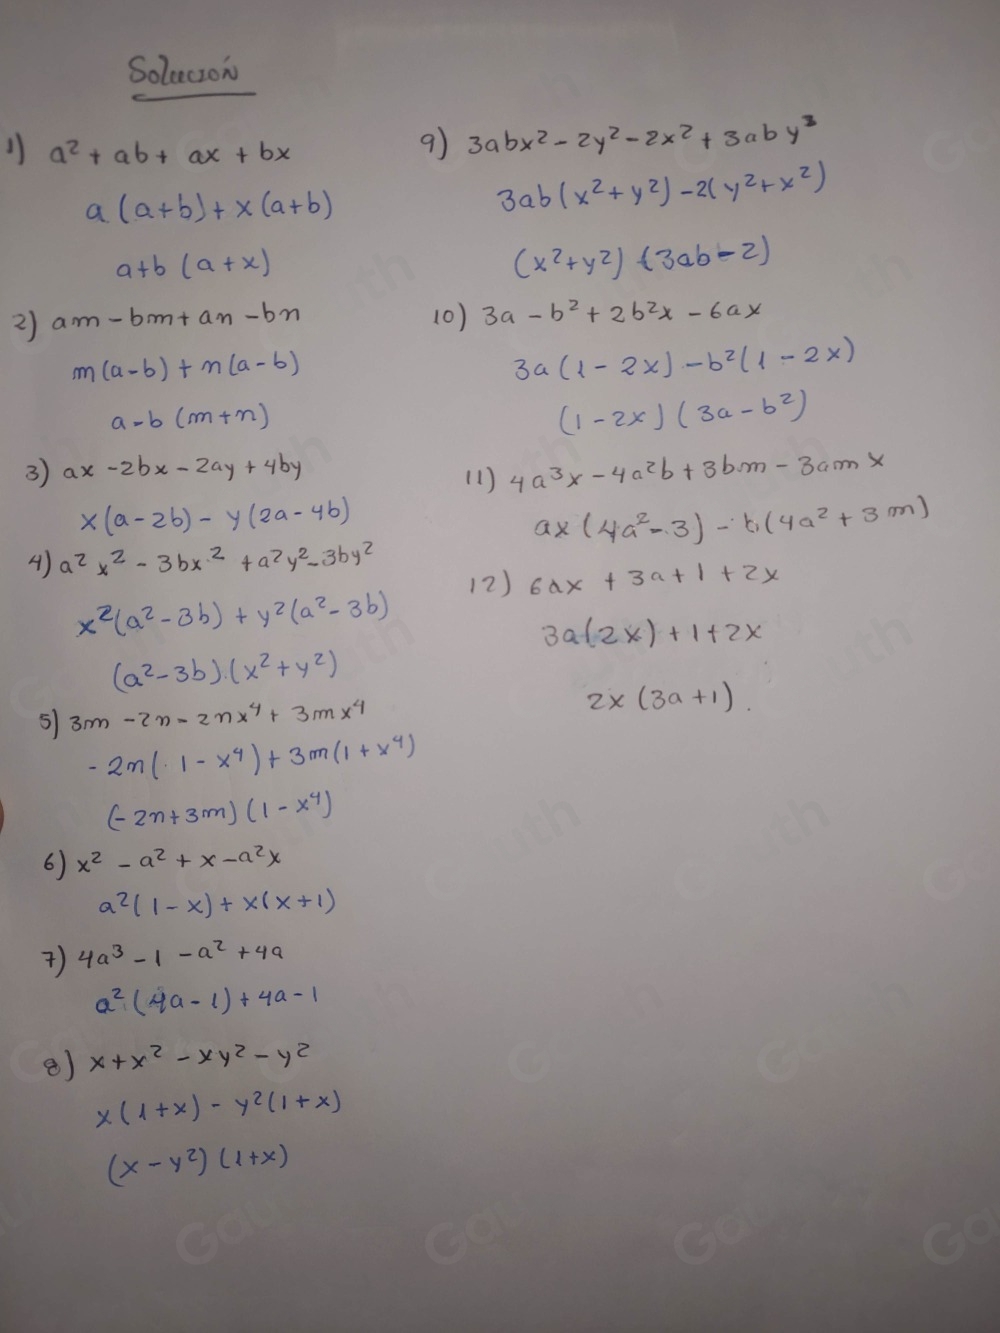 Solución
1) a² + ab + ax + bx
a (a+b) + x (a+b)
a+b (a+x)
2) am - bm + an - bn
m(a-b) + n(a-b)
a-b (m+n)
3) ax - 2bx - 2ay + 4by
x(a-2b) - y(2a-4b)
4) a² x² - 3bx² + a²y² - 3by²
x²(a²-3b) + y²(a²-3b)
(a²-3b).(x²+y²)
5) 3m - 2n - 2nx⁴ + 3mx⁴
- 2n(. 1 - x⁴) + 3m(1 + x⁴)
(-2n+3m) (1-x⁴)
6) x² - a² + x - a²x
a²(1-x) + x(x+1)
7) 4a³ - 1 - a² + 4a
a² (4a-1) + 4a-1
8) x + x² - xy² - y²
x(1+x) - y²(1+x)
(x-y²) (1+x)
9) 3abx² - 2y² - 2x² + 3aby³
3ab(x²+y²) - 2(y²+x²)
(x²+y²) (3ab-2)
10) 3a - b² + 2b²x - 6ax
3a(1-2x) - b²(1-2x)
(1-2x) (3a-b²)
11) 4a³x - 4a²b + 3bm - 3amx
ax (4a²-3) - b(4a² + 3m)
12) 6ax + 3a + 1 + 2x
3a(2x) + 1 + 2x
2x (3a+1).
Gauth